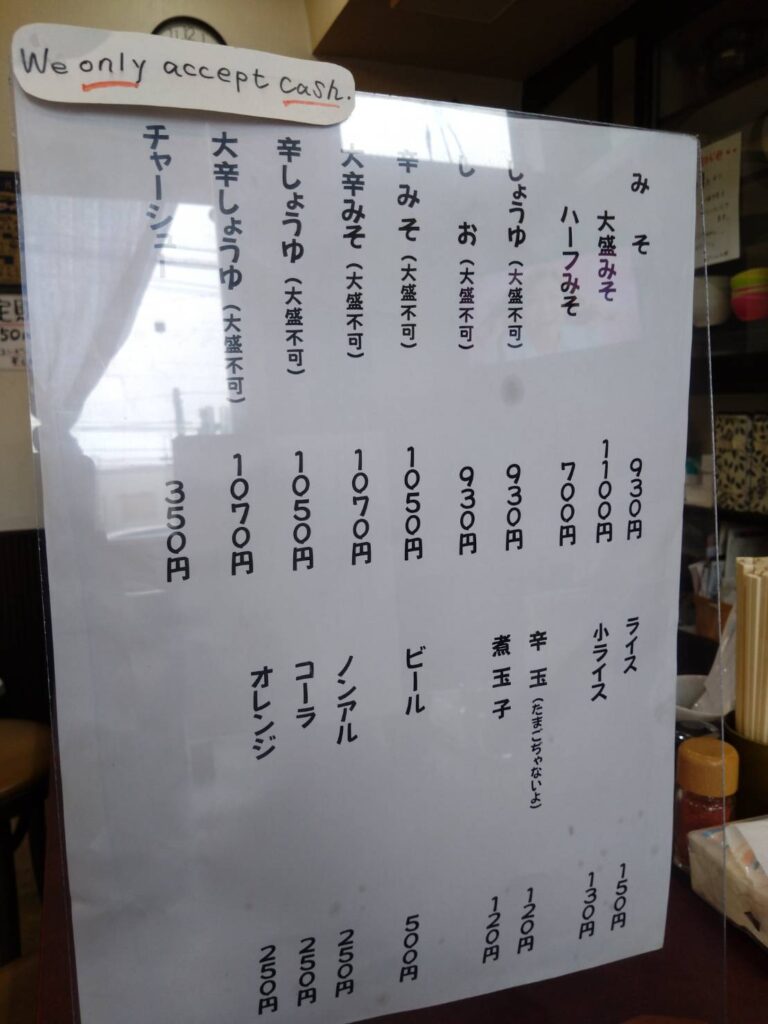 We only accept cash.
みそ 930円
大盛みそ 1100円
ハーフみそ 700円
しょうゆ（大盛不可） 930円
しお（大盛不可） 930円
辛みそ（大盛不可） 1050円
大辛みそ（大盛不可） 1070円
辛しょうゆ（大盛不可） 1050円
大辛しょうゆ（大盛不可） 1070円
チャーシュー 350円
ライス 150円
小ライス 130円
辛玉（たまごぢゃないよ） 120円
煮玉子 120円
ビール 500円
ノンアル 250円
コーラ 250円
オレンジ 250円